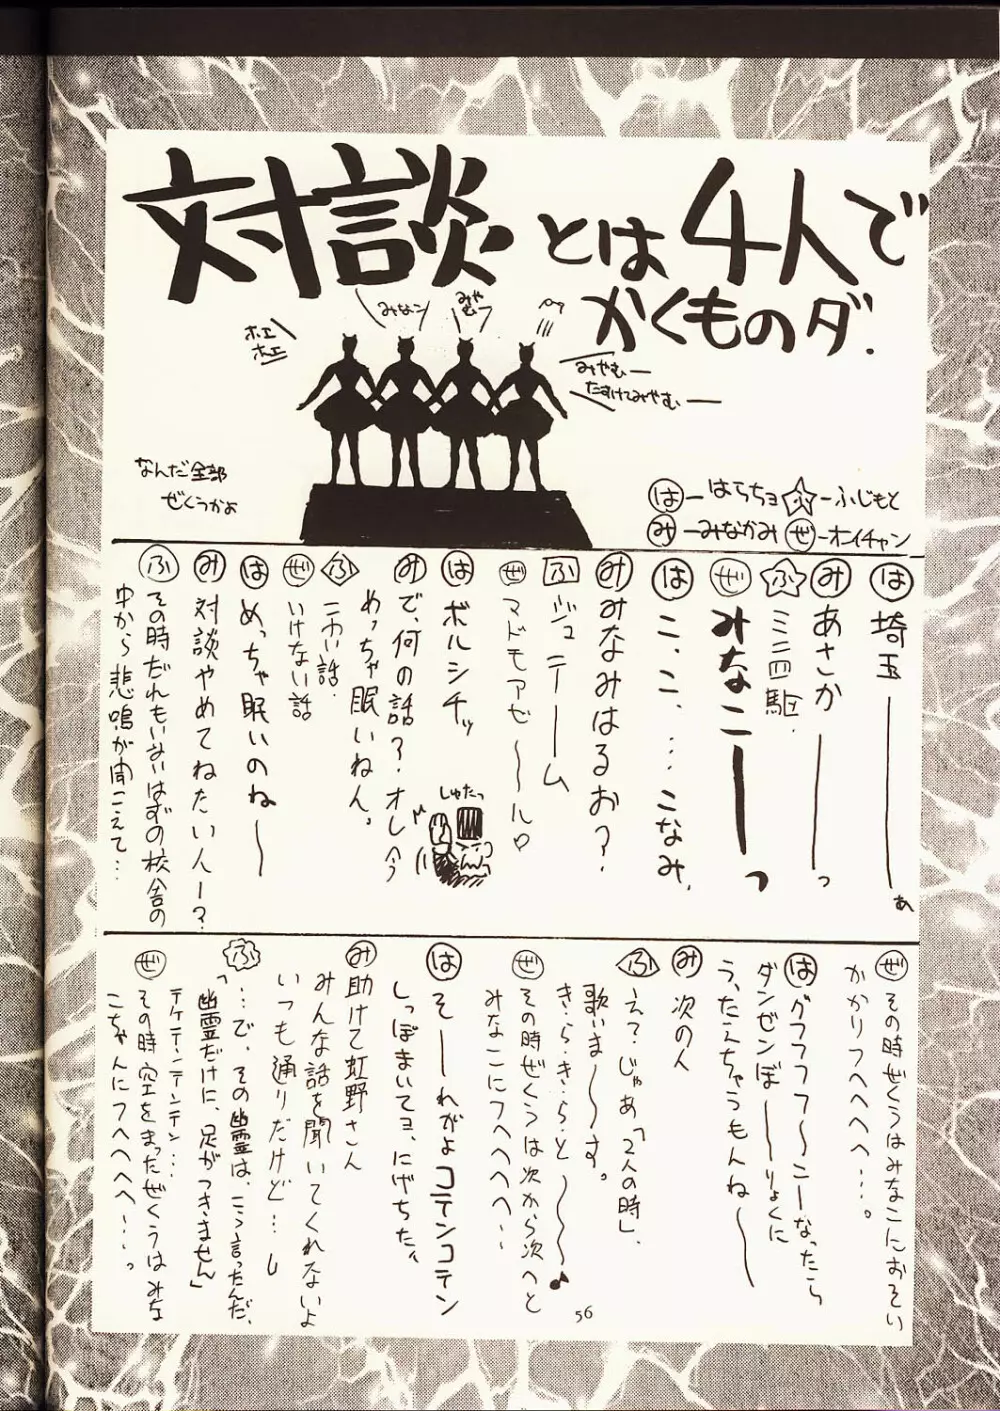 対談とは4人で
かくものダ.
みなつ
みやむっ
ホエ
ホエ
みやむー
たすけてみやむー
なんだ全部
ぜくうかよ
はーはらちョ ふーふじもと
みーみなかみ ぜーオイチャン
は 埼玉――――ぁ
み あさか――――っ
ふ ミニ四駆.
ぜ みなこ―――っ
は こ、こ、…こなみ、
み みなみはるお?
ふ ジュテーーム
ぜ マドモアゼ〜〜ル♡
は ボルシチッ
み で、何の話?オレ今
めっちゃ眠いねん。
ふ こわい話.
ぜ いけない話
は めっちゃ眠いのね〜
み 対談やめてねたい人ー?
ふ その時だれもいないはずの校舎の
中から悲鳴が聞こえて…
しゅたっ
ぜ その時ぜくうはみなこにおそい
かかりフヘヘヘヘ…。
は グフフフフ〜こーなったら
ダンゼンぼ――りょくに
う、たえちゃうもんね〜〜
み 次の人
ふ え?じゃあ「2人の時」、
歌いま〜〜す。
き・ら・き・ら・と〜〜〜♪
ぜ その時ぜくうは次から次へと
みなこにフヘヘヘヘヘ…
は そ――れがよコテンコテン
しっぽまいてョ、にげちた。
み 助けて虹野さん
みんな話を聞いてくれないよ
いつも通りだけど…し
ふ 「…で、その幽霊は、こう言ったんだ、
幽霊だけに、足がつきません」
テケテンテンテン…
ぜ その時空をまったぜくうはみな
こちゃんにフヘヘヘヘ…。
56